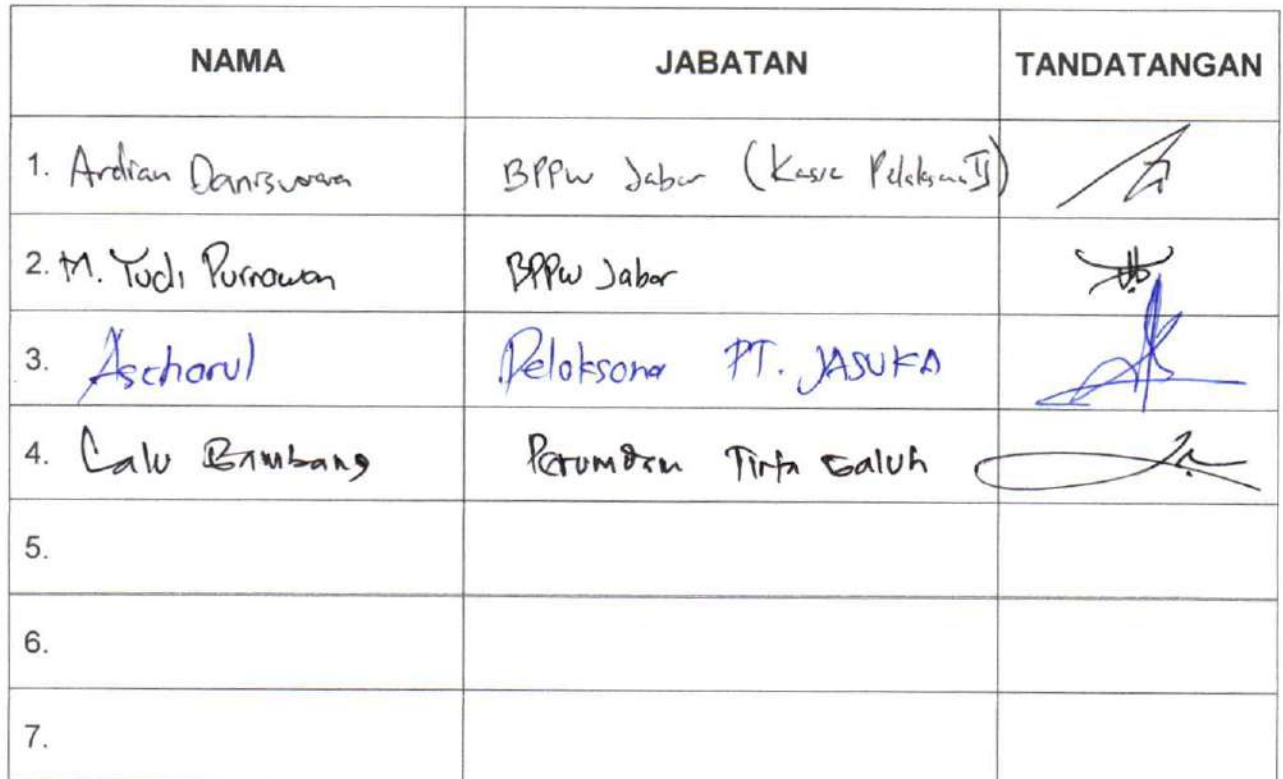 NAMA JABATAN TANDATANGAN
1. Ardian Daniswara BPPW Jabar (Kasie Pelaksana II)
2. M. Yudi Purnawan BPPW Jabar
3. Aschorul Pelaksana PT. JASUKA
4. Lalu Bambang Perumdam Tirta Galuh
5.
6.
7.